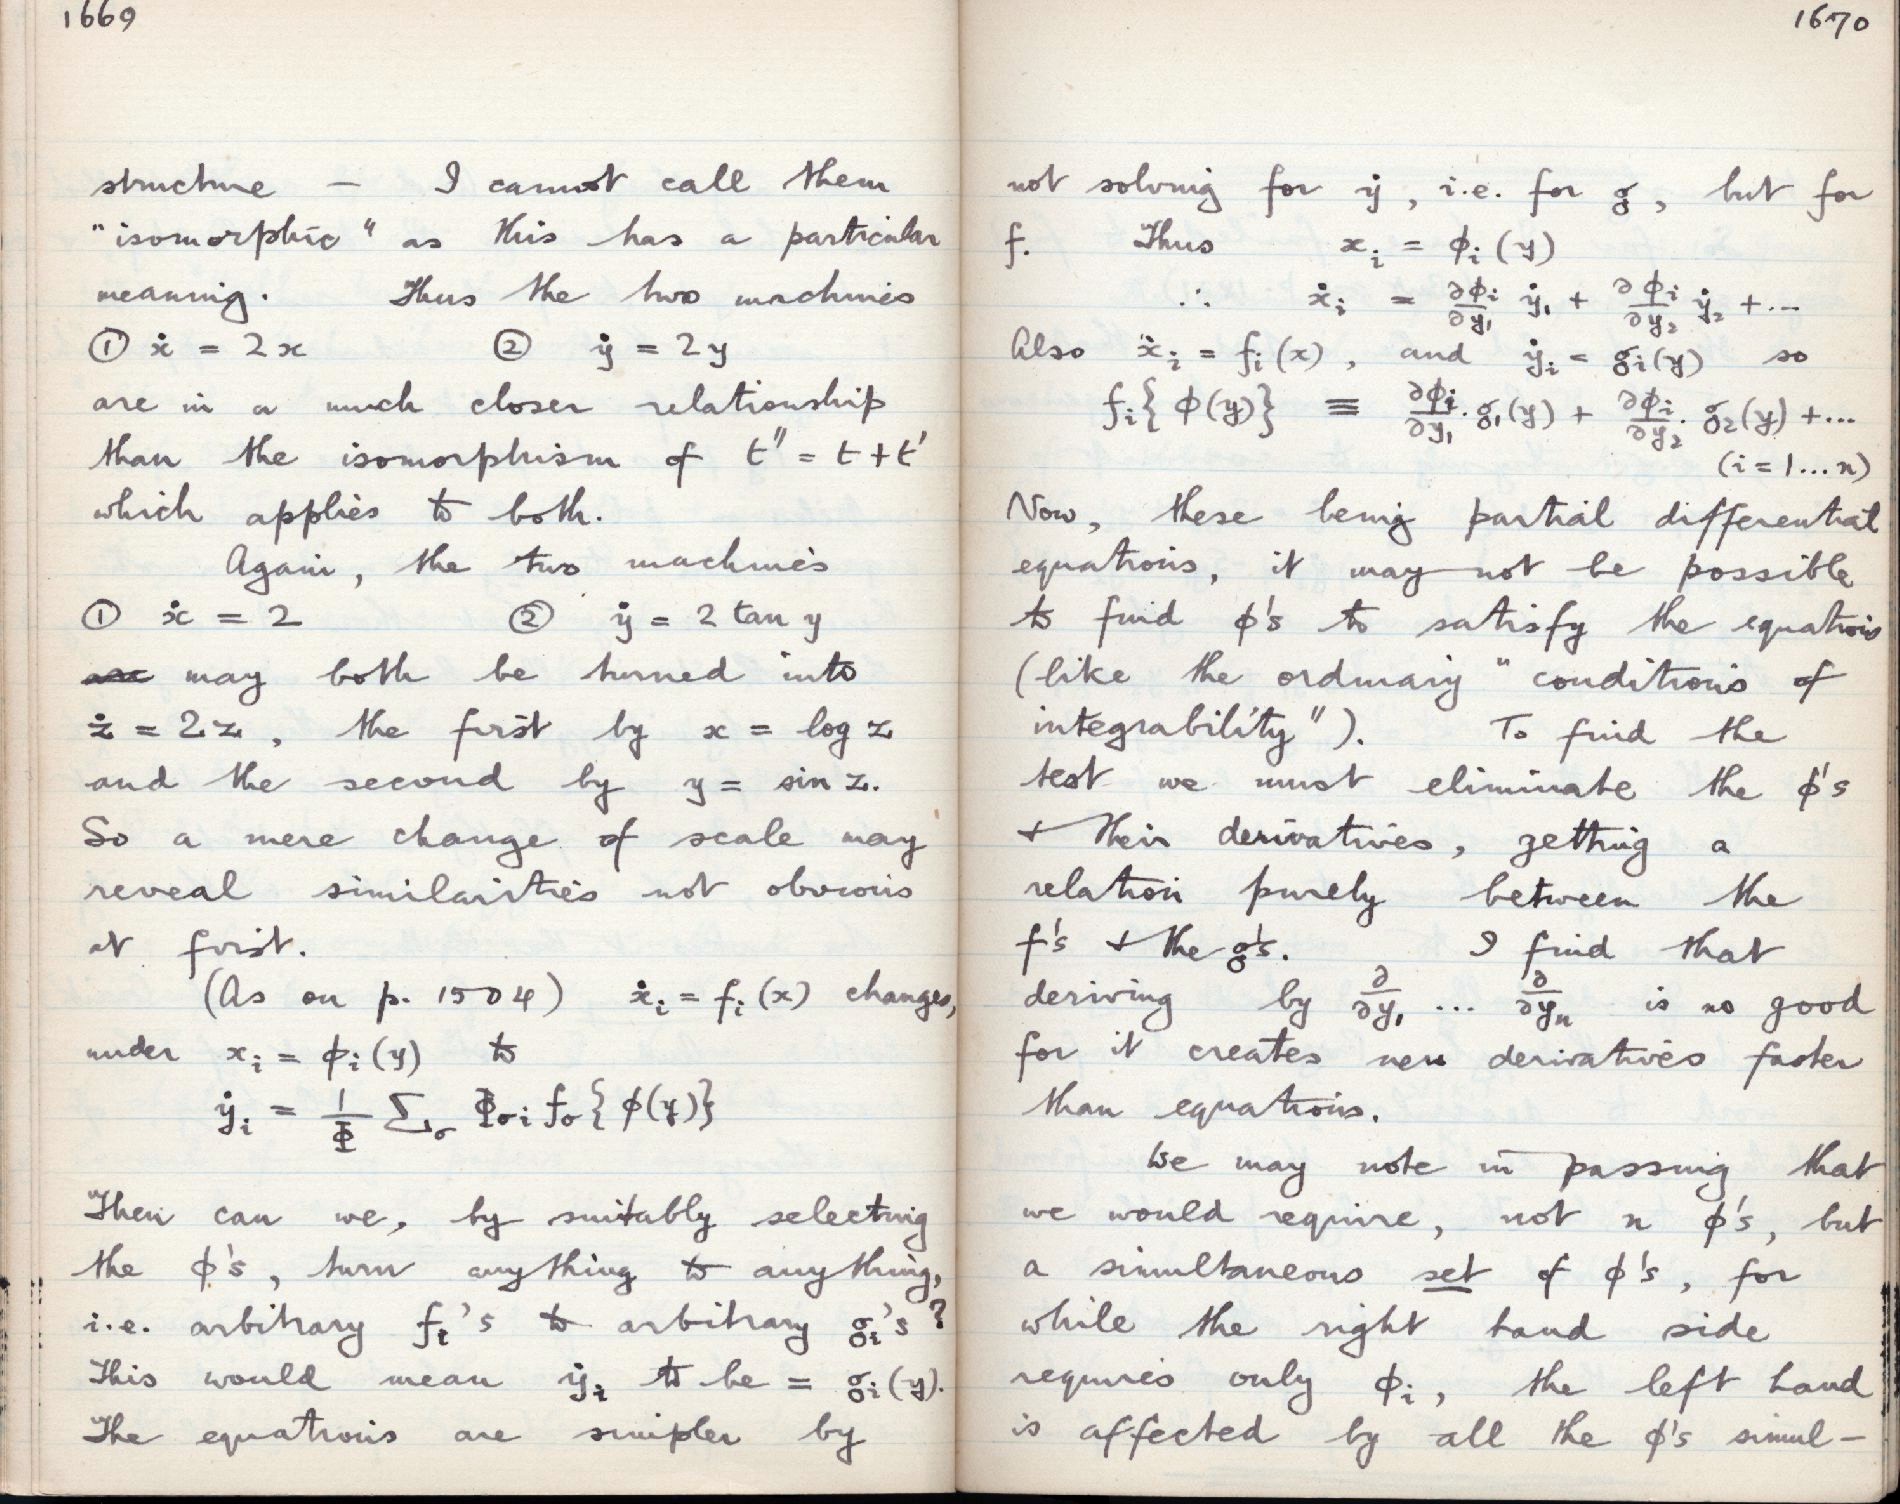 1669
structure — I cannot call them
"isomorphic" as this has a particular
meaning. Thus the two machines
① ẋ = 2x ② ẏ = 2y
are in a much closer relationship
than the isomorphism of t'' = t + t'
which applies to both.
Again, the two machines
① ẋ = 2 ② ẏ = 2 tan y
may both be turned into
ż = 2z, the first by x = log z
and the second by y = sin z.
So a mere change of scale may
reveal similarities not obvious
at first.
(As on p. 1504) ẋᵢ = fᵢ(x) changes,
under xᵢ = ϕᵢ(y) to
ẏᵢ = 1/Φ Σσ Φσi fσ{ϕ(y)}
Then can we, by suitably selecting
the ϕ's, turn anything to anything,
i.e. arbitrary fᵢ's to arbitrary gᵢ's?
This would mean ẏᵢ to be = gᵢ(y).
The equations are simpler by
1670
not solving for ẏ, i.e. for g, but for
f. Thus xᵢ = ϕᵢ(y)
∴ ẋᵢ = ∂ϕᵢ/∂y₁ ẏ₁ + ∂ϕᵢ/∂y₂ ẏ₂ + ...
Also ẋᵢ = fᵢ(x), and ẏᵢ = gᵢ(y) so
fᵢ{ϕ(y)} ≡ ∂ϕᵢ/∂y₁ . g₁(y) + ∂ϕᵢ/∂y₂ . g₂(y) + ...
(i = 1...n)
Now, these being partial differential
equations, it may not be possible
to find ϕ's to satisfy the equations
(like the ordinary "conditions of
integrability"). To find the
test we must eliminate the ϕ's
+ their derivatives, getting a
relation purely between the
f's + the g's. I find that
deriving by ∂/∂y₁ ... ∂/∂yₙ is no good
for it creates new derivatives faster
than equations.
We may note in passing that
we would require, not n ϕ's, but
a simultaneous set of ϕ's, for
while the right hand side
requires only ϕᵢ, the left hand
is affected by all the ϕ's simul-